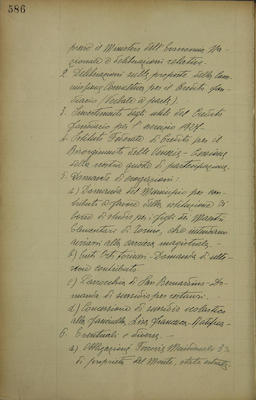 586
presso il Ministero dell'Economia Na-
zionale e deliberazioni relative.
2. Deliberazioni sulle proposte della Com-
missione Consultiva per il Credito Fon-
diario (Verbale a parte).
3. Investimento degli utili del Credito
Fondiario per l'esercizio 1927.
4. Istituto Federale di Credito per il
Risorgimento delle Venezie - Cessione
della nostra quota di partecipazione.
5. Domande di erogazioni:
a) Domanda del Municipio per con-
tributo a favore della istituzione di
borse di studio per i figli dei Maestri
Elementari di Torino, che intendano
avviarsi alla carriera magistrale.
b) Domanda di sus-
sidio contributo.
c) Parrocchia di San Bernardino - Do-
manda di sussidio per restauri.
d) Concessione di sussidio scolastico
alla fanciulla Francesca - Ratifica -
6. Eventuali e diverse. -
a) Obbligazioni Ferrovie Meridionali 3%
di proprietà del Monte, state estratte